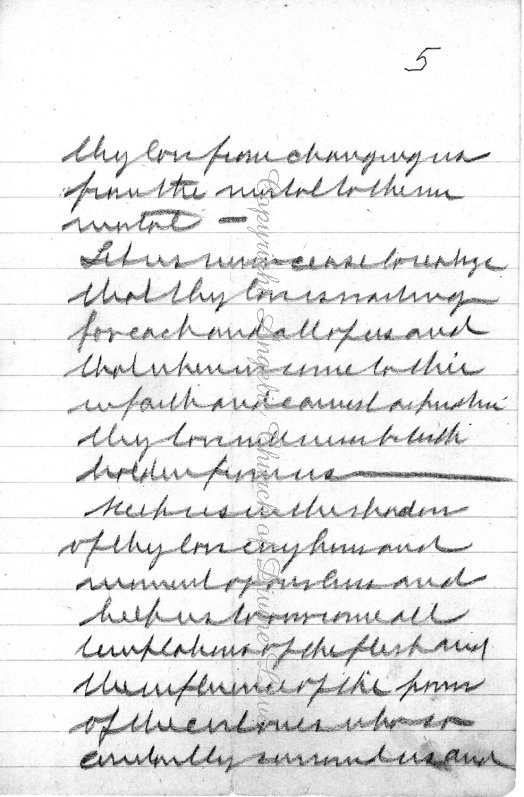 5
thy love from changing us
from the mortal to the im
mortal —
Let us never cease to realize
that thy love is waiting
for each and all of us and
that when we come to thee
in faith and earnest aspiration
thy love will never be with
holden from us
Keep us in the shadow
of thy love every hour and
moment of our lives and
help us to overcome all
temptations of the flesh and
the influence of the powers
of the evil ones who so
constantly surround us and